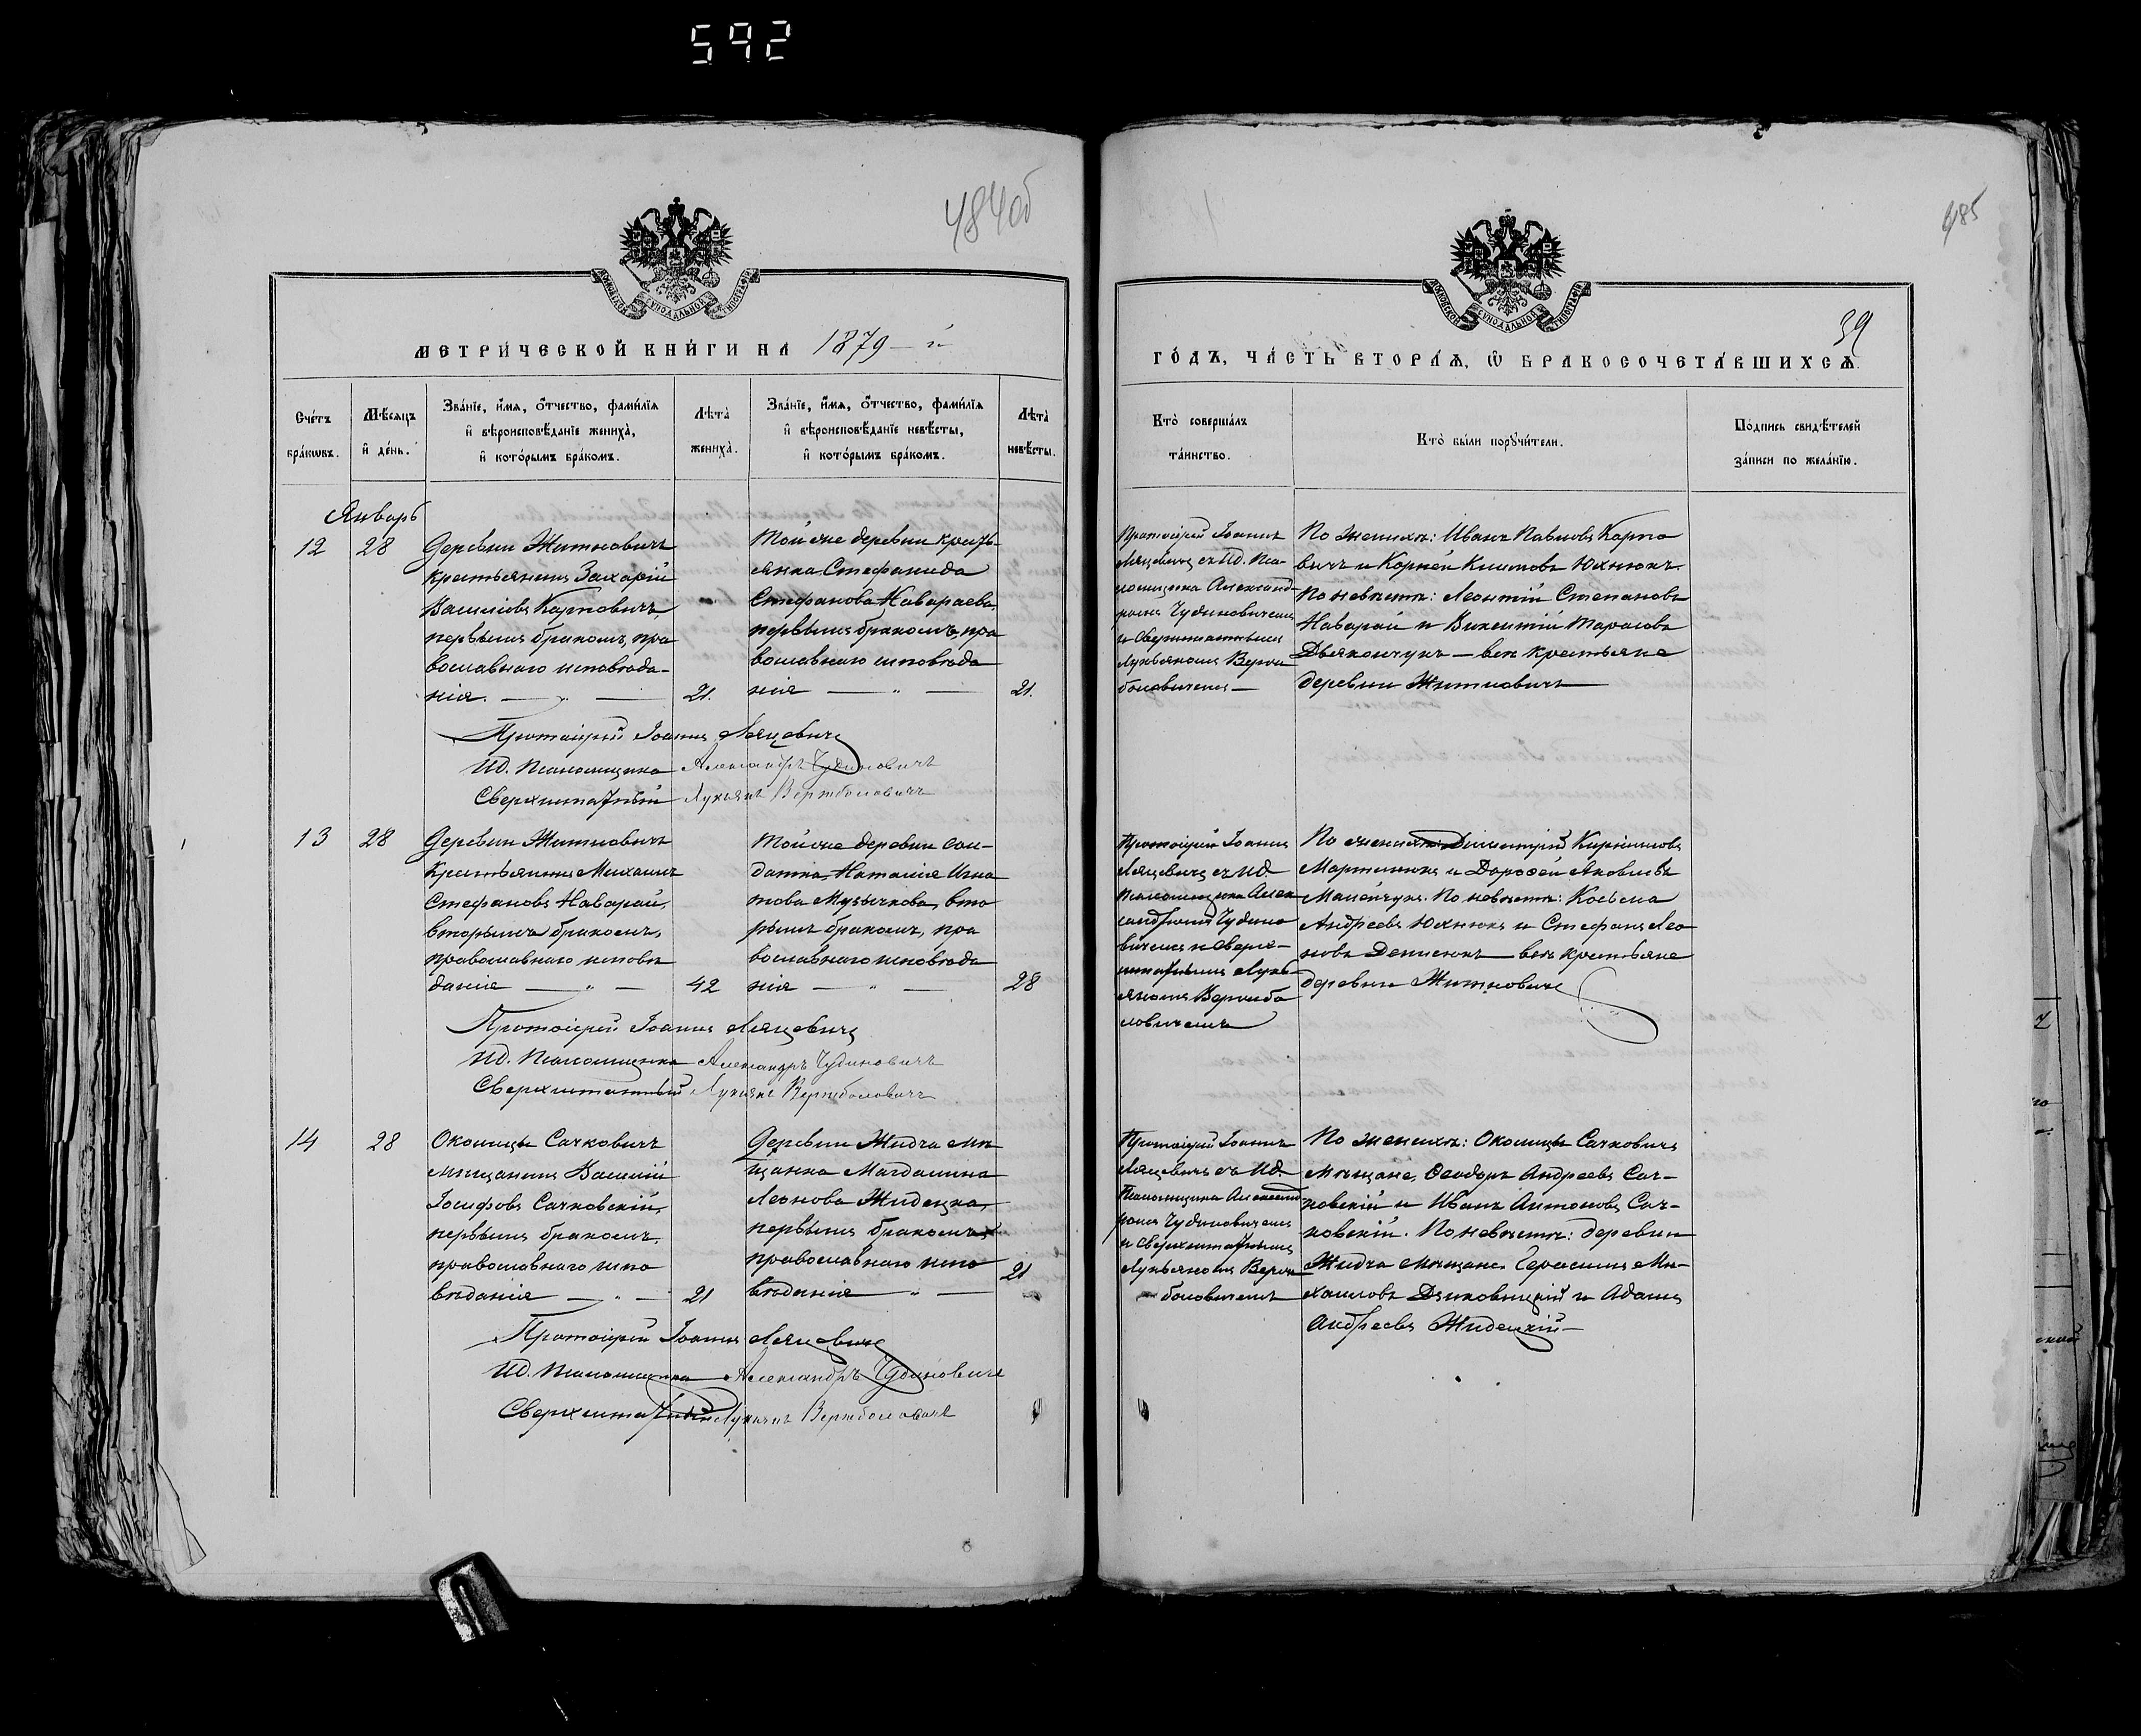 592
484об
485
39
МОСКОВСКОЙ СѴНОДАЛЬНОЙ ТИПОГРАФІИ
МОСКОВСКОЙ СѴНОДАЛЬНОЙ ТИПОГРАФІИ
МЕТРИ́ЧЕСКОЙ КНИ́ГИ НА 1879-й
ГО́ДЪ, ЧА́СТЬ ВТОРА́Ѧ, Ѿ БРАКОСОЧЕТА́ВШИХСѦ.
Сче́тъ бра́кѡвъ.
Мѣ́сяцъ и҆ де́нь.
Зва́нїе, и҆́мѧ, о҆́тчество, фами́лїѧ
и҆ вѣроисповѣ́данїе жениха̀,
и҆ кото́рымъ бра́комъ.
Лѣта̀ жениха̀.
Зва́нїе, и҆́мѧ, о҆́тчество, фами́лїѧ
и҆ вѣроисповѣ́данїе невѣ́сты,
и҆ кото́рымъ бра́комъ.
Лѣта̀ невѣ́сты.
Кто̀ соверша́лъ та́инство.
Кто̀ бы́ли порꙋчи́тели.
По́дпись свидѣ́телей
за́писи по жела́нїю.
Январь
12
28
Деревни Житновичъ
крестьянинъ Захарій
Василіовъ Карповичъ,
первымъ бракомъ, пра
вославнаго исповѣда-
нія.
21.
Той же деревни кресть-
янка Стефанида
Стефанова Навараева,
первымъ бракомъ, пра
вославнаго исповѣда
нія
21.
Протоіерей Іоаннъ
Ляцевичъ съ ИД. Пса-
ломщика Александ-
ромъ Чудиновичемъ
и Сверхштатнымъ
Лукьяномъ Верж
боловичемъ
По женихѣ: Иванъ Павловъ Карпо
вичъ и Корней Климовъ Юхнюкъ.
По невѣстѣ: Леонтій Степановъ
Наварай и Викентій Тарасовъ
Дьякончукъ — всѣ крестьяне
деревни Житновичъ
Протоіерей Іоаннъ Ляцевичъ
ИД. Псаломщика Александръ Чудиновичъ
Сверхштатный Лукьянъ Вержболовичъ
13
28
Деревни Житновичъ
Крестьянинъ Михаилъ
Стефановъ Наварай,
вторымъ бракомъ,
православнаго исповѣ
данія
42
Той же деревни сол-
датка, Наталія Игна
това Музычкова, вто
рымъ бракомъ, пра
вославнаго исповѣда
нія
28
Протоіерей Іоаннъ
Ляцевичъ съ ИД.
Псаломщика Алек
сандромъ Чудино
вичемъ и Сверх-
штатнымъ Лукь-
яномъ Вержбо
ловичемъ
По женихѣ: Димитрій Кирилловъ
Мартинюкъ и Дороѳей Яковлевъ
Малейчукъ. По невѣстѣ: Косьма
Андреевъ Юхнюкъ и Стефанъ Лео
новъ Денисюкъ — всѣ крестьяне
деревни Житновичъ
Протоіерей Іоаннъ Ляцевичъ
ИД. Псаломщика Александръ Чудиновичъ
Сверхштатный Лукьянъ Вержболовичъ
14
28
Околицы Сачковичъ
мѣщанинъ Василій
Іосифовъ Сачковскій,
первымъ бракомъ,
православнаго испо
вѣданія
21
Деревни Жидча мѣ
щанка Магдалина
Леонова Жидецка,
первымъ бракомъ,
православнаго испо
вѣданія
21
Протоіерей Іоаннъ
Ляцевичъ съ ИД.
Псаломщика Александ
ромъ Чудиновичемъ
и Сверхштатнымъ
Лукьяномъ Верж
боловичемъ
По женихѣ: Околицы Сачковичъ
Мѣщане, Ѳеодоръ Андреевъ Сач-
ковскій и Иванъ Антоновъ Сач-
ковскій. По невѣстѣ: деревни
Жидча мѣщане. Герасимъ Ми-
хаиловъ Дзиковицкій и Адамъ
Андреевъ Жидецкій —
Протоіерей Іоаннъ Ляцевичъ
ИД. Псаломщика Александръ Чудиновичъ
Сверхштатный Лукьянъ Вержболовичъ